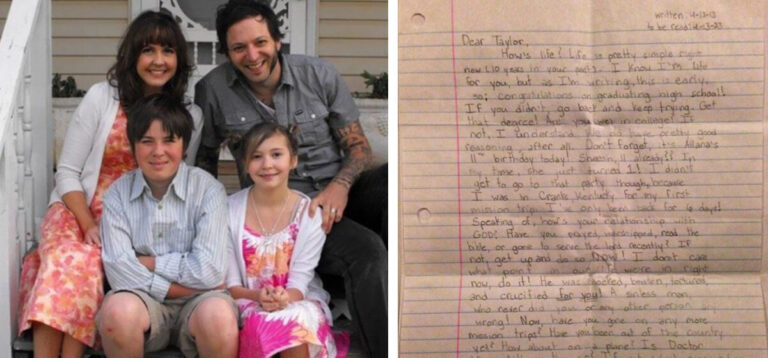 written 4-13-13
to be read: 4-13-23
Dear Taylor,
How's life? Life is pretty simple right
now (10 years in your past). I know I'm late
for you, but as I'm writing, this is early,
so; congratulations on graduating high school!
If you didn't, go back and keep trying. Get
that degree! Are you in college? If
not, I understand. We do have pretty good
reasoning, after all. Don't forget, it's Allana's
11th birthday today! Sheesh, 11 already?? In
my time, she just turned 1! I didn't
get to go to that party though, because
I was in Cranks, Kentucky for my first
mission trip. I've only been back for 6 days!
Speaking of, how's your relationship with
GOD? Have you prayed, worshipped, read the
bible, or gone to serve the lord recently? If
not, get up and do so NOW! I don't care
what point in our life we're in right
now, do it! He was mocked, beaten, tortured,
and crucified for you! A sinless man,
who never did you or any other person
wrong! Now, have you gone on any more
mission trips? Have you been out of the country
yet? How about on a plane? Is Doctor